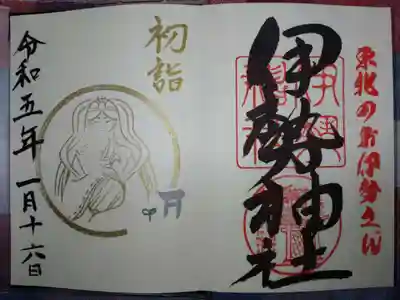 東北のお伊勢さん
伊勢神社
初詣
令和五年一月十六日